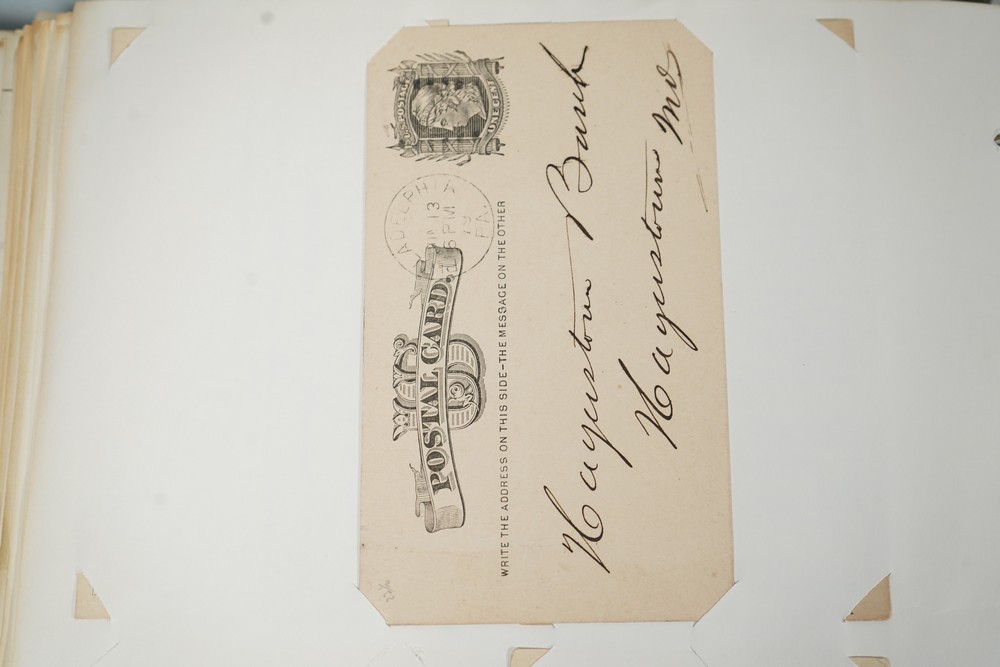 U.S. POSTAGE
ONE CENT
ADELPHIA
13
6 PM
PA.
US
POSTAL CARD
WRITE THE ADDRESS ON THIS SIDE–THE MESSAGE ON THE OTHER
Hagerstown Bank
Hagerstown Md